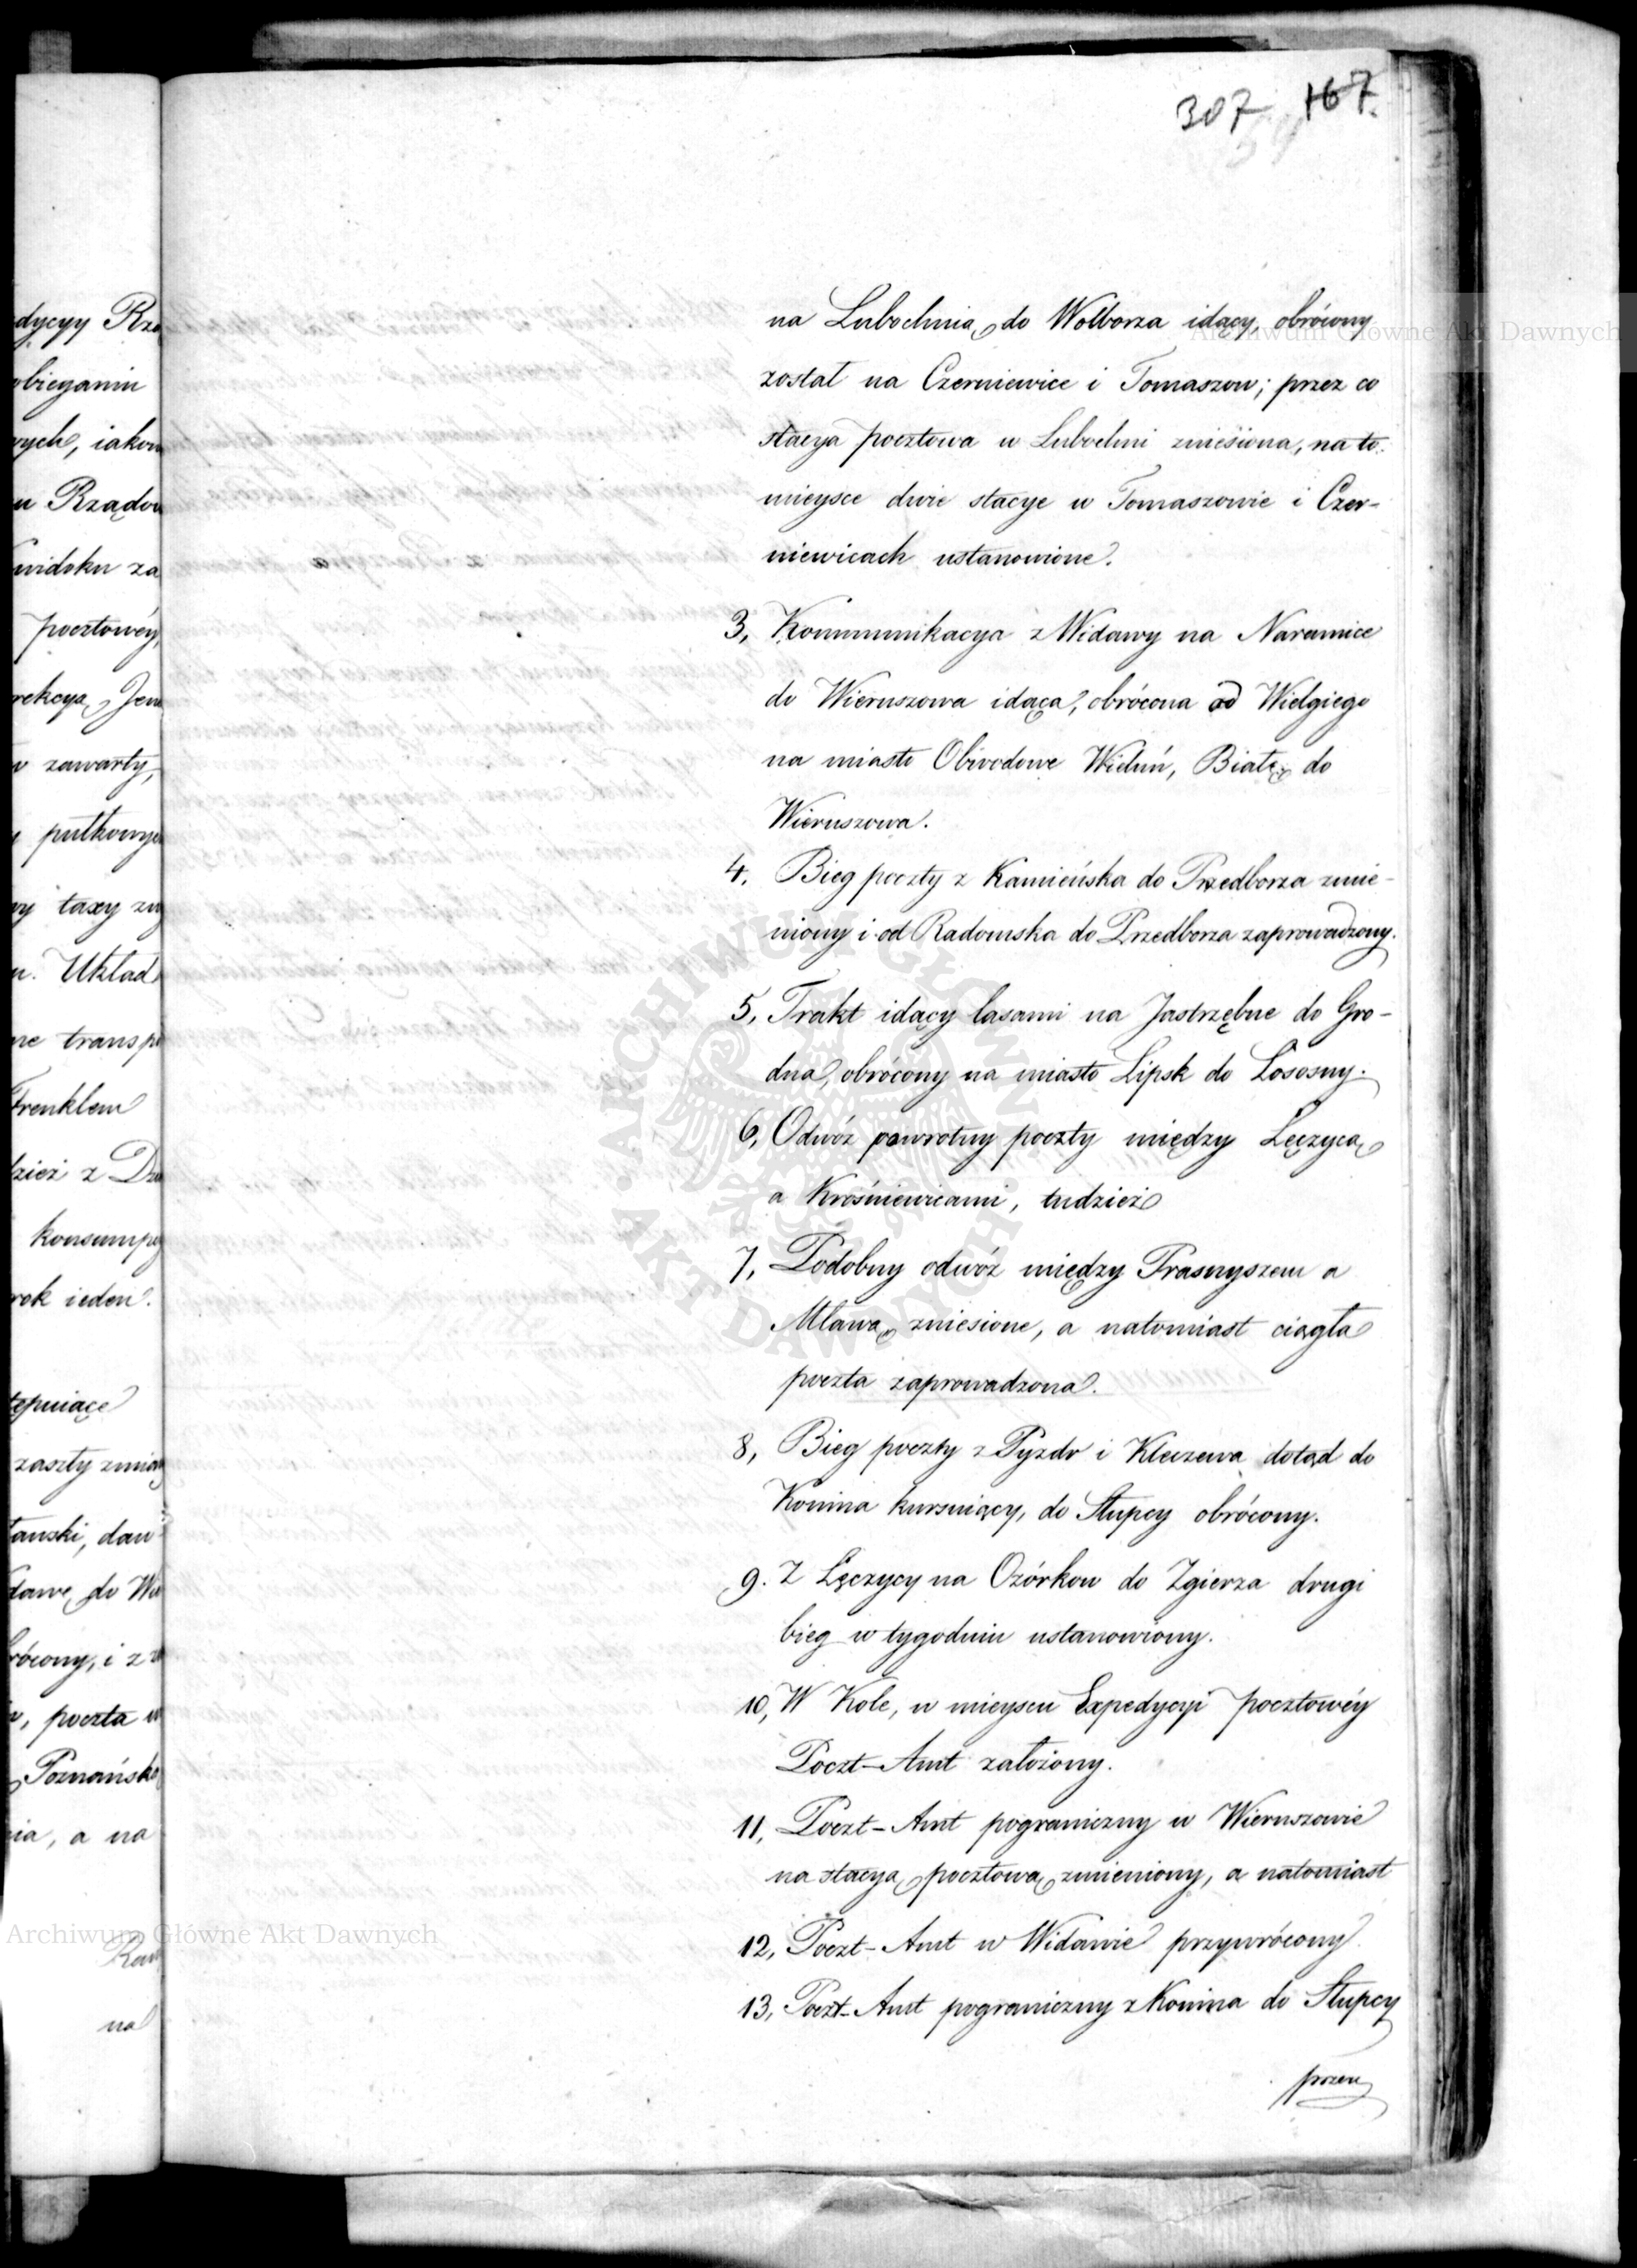 307 167.
na Lubochnią do Wolborza idący, obrócony
został na Czerniewice i Tomaszow; przez co
stacya pocztowa w Lubochni zniesiona, na to
mieysce dwie stacye w Tomaszowie i Czer-
niewicach ustanowione.
3, Kommunikacya z Widawy na Naramice
do Wieruszowa idąca, obrócona od Wielgiego
na miasto Obwodowe Wieluń, Białę do
Wieruszowa.
4. Bieg poczty z Kamieńska do Przedborza zmie-
niony i od Radomska do Przedborza zaprowadzony.
5, Trakt idący lasami na Jastrzębne do Gro-
dna, obrócony na miasto Lipsk do Łososny.
6, Odwóz powrotny poczty między Łęczycą
a Krośniewicami, tudzież
7, Podobny odwóz między Prasnyszem a
Mławą zniesione, a natomiast ciągła
poczta zaprowadzona.
8, Bieg poczty z Pyzdr i Kleczewa dotąd do
Konina kursuiący, do Słupcy obrócony.
9. Z Łęczycy na Ozórkow do Zgierza drugi
bieg w tygodniu ustanowiony.
10, W Kole, w mieyscu Expedycyi pocztowéy
Poczt-Amt założony.
11, Poczt-Amt pograniczny w Wieruszowie
na stacyą pocztową zmieniony, a natomiast
12, Poczt-Amt w Widawie przywrócony.
13, Poczt-Amt pograniczny z Konina do Słupcy
przen
dycyy Rzą
obieganiu
wych, iakow
u Rządow
widoku za
pocztowéy,
rekcyą Jen
zawarty,
pułkowy
taxy
Układ
ne transp
Frenklem
dzież z
konsumpcy
rok ieden.
tępuiące
zaszły zmian
łanski, daw
dawę do Wo
rócony, i z
poczta w
Poznańsk
nia, a na
na
Archiwum Główne Akt Dawnych
Archiwum Główne Akt Dawnych
ARCHIWUM GŁÓWNE AKT DAWNYCH